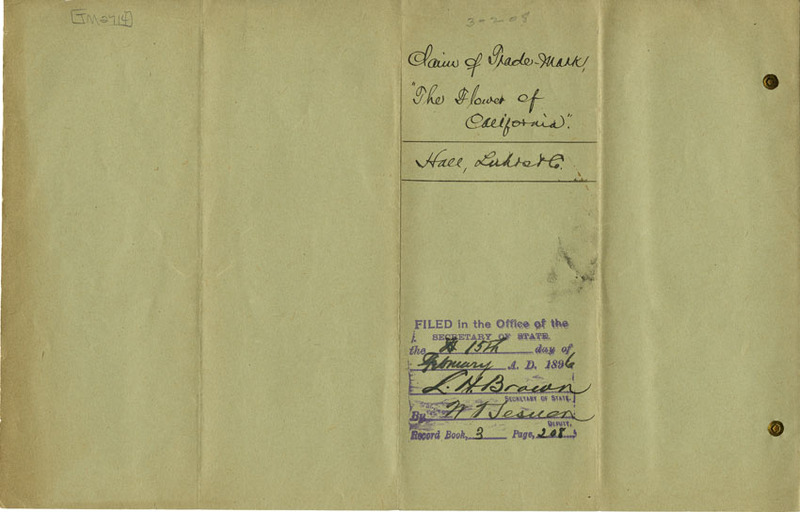 [TM2714]
3-2-08
Claim of Trade-Mark,
"The Flower of
California".
Hall, Luhrs & Co.
FILED in the Office of the
SECRETARY OF STATE,
the 15th day of
February A. D. 1896
L. H. Brown
SECRETARY OF STATE.
By
DEPUTY.
Record Book, 3 Page, 208